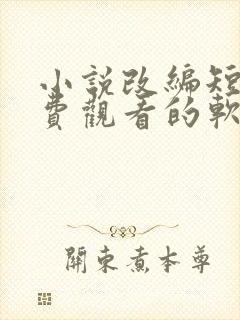 小說改編短
費觀看的軟
關東煮本尊